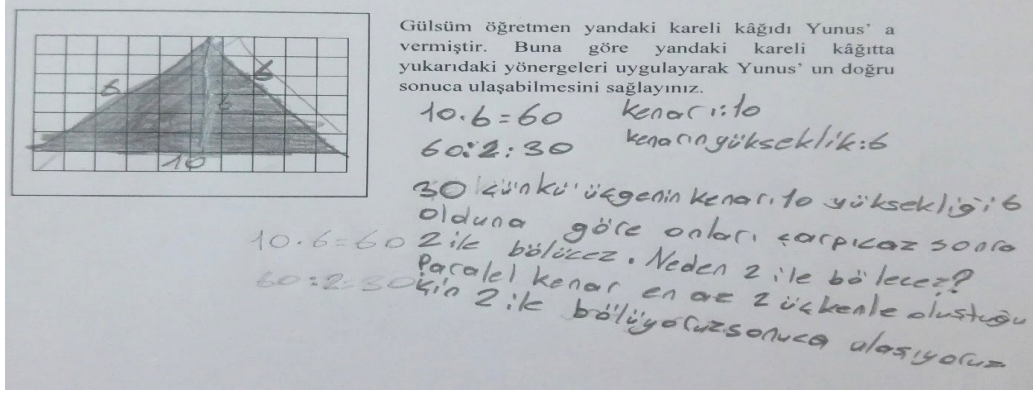 Gülsüm öğretmen yandaki kareli kâğıdı Yunus' a
vermiştir. Buna göre yandaki kareli kâğıtta
yukarıdaki yönergeleri uygulayarak Yunus' un doğru
sonuca ulaşabilmesini sağlayınız.
6
6
6
10
10.6=60 kenarı:10
60:2:30 kenarın yükseklik:6
30 çünkü üçgenin kenarı 10 yüksekliği 6
olduna göre onları çarpıcaz sonra
10.6=60
2 ile bölücez. Neden 2 ile bölecez?
60:2=30
Paralel kenar en az 2 üçkenle oluştuğu
için 2 ile bölüyoruz sonuca ulaşıyoruz